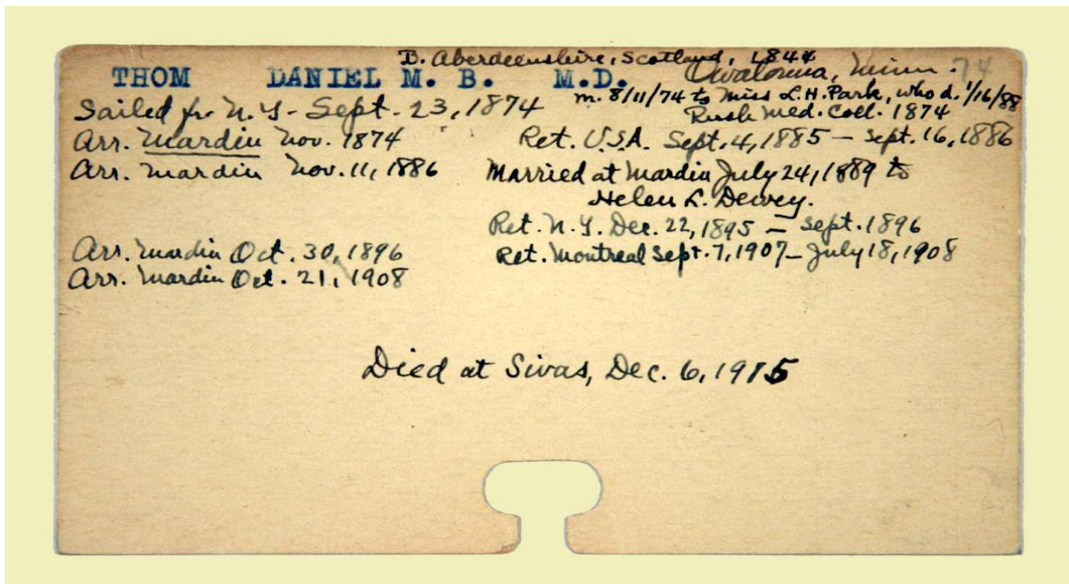 B. Aberdeenshire, Scotland, 1844
THOM DANIEL M. B. M.D. Owatonna, Minn. 74
m. 8/11/74 to Miss L.H. Park, who d. 1/16/88
Sailed fr. N.Y - Sept. 23, 1874 Rush Med. Coll. 1874
Arr. Mardin Nov. 1874 Ret. U.S.A. Sept. 4, 1885 - Sept. 16, 1886
Arr. Mardin Nov. 11, 1886 Married at Mardin July 24, 1889 to
Helen L. Dewey.
Ret. N.Y. Dec. 22, 1895 - Sept. 1896
Arr. Mardin Oct. 30, 1896 Ret. Montreal Sept. 7, 1907 - July 18, 1908
Arr. Mardin Oct. 21, 1908
Died at Sivas, Dec. 6, 1915